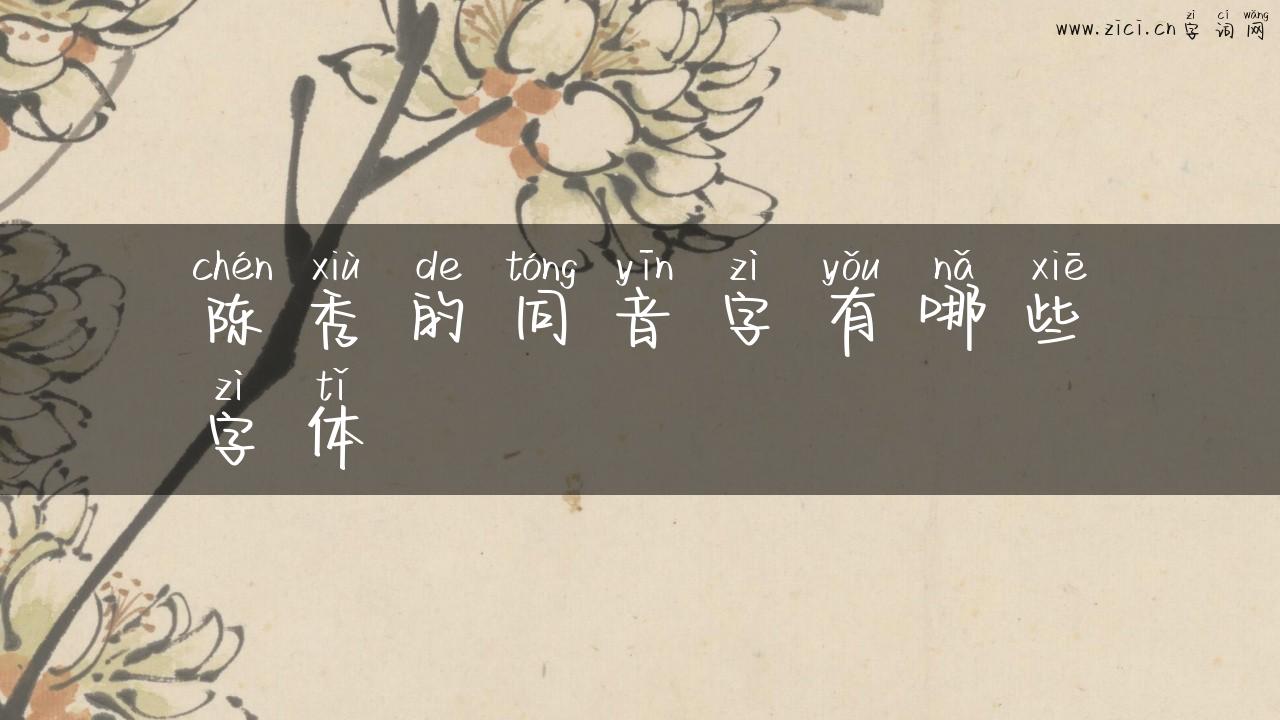 zì cí wǎng
www.zici.cn 字 词 网
chén xiù de tóng yīn zì yǒu nǎ xiē
陈 秀 的 同 音 字 有 哪 些
zì tǐ
字 体